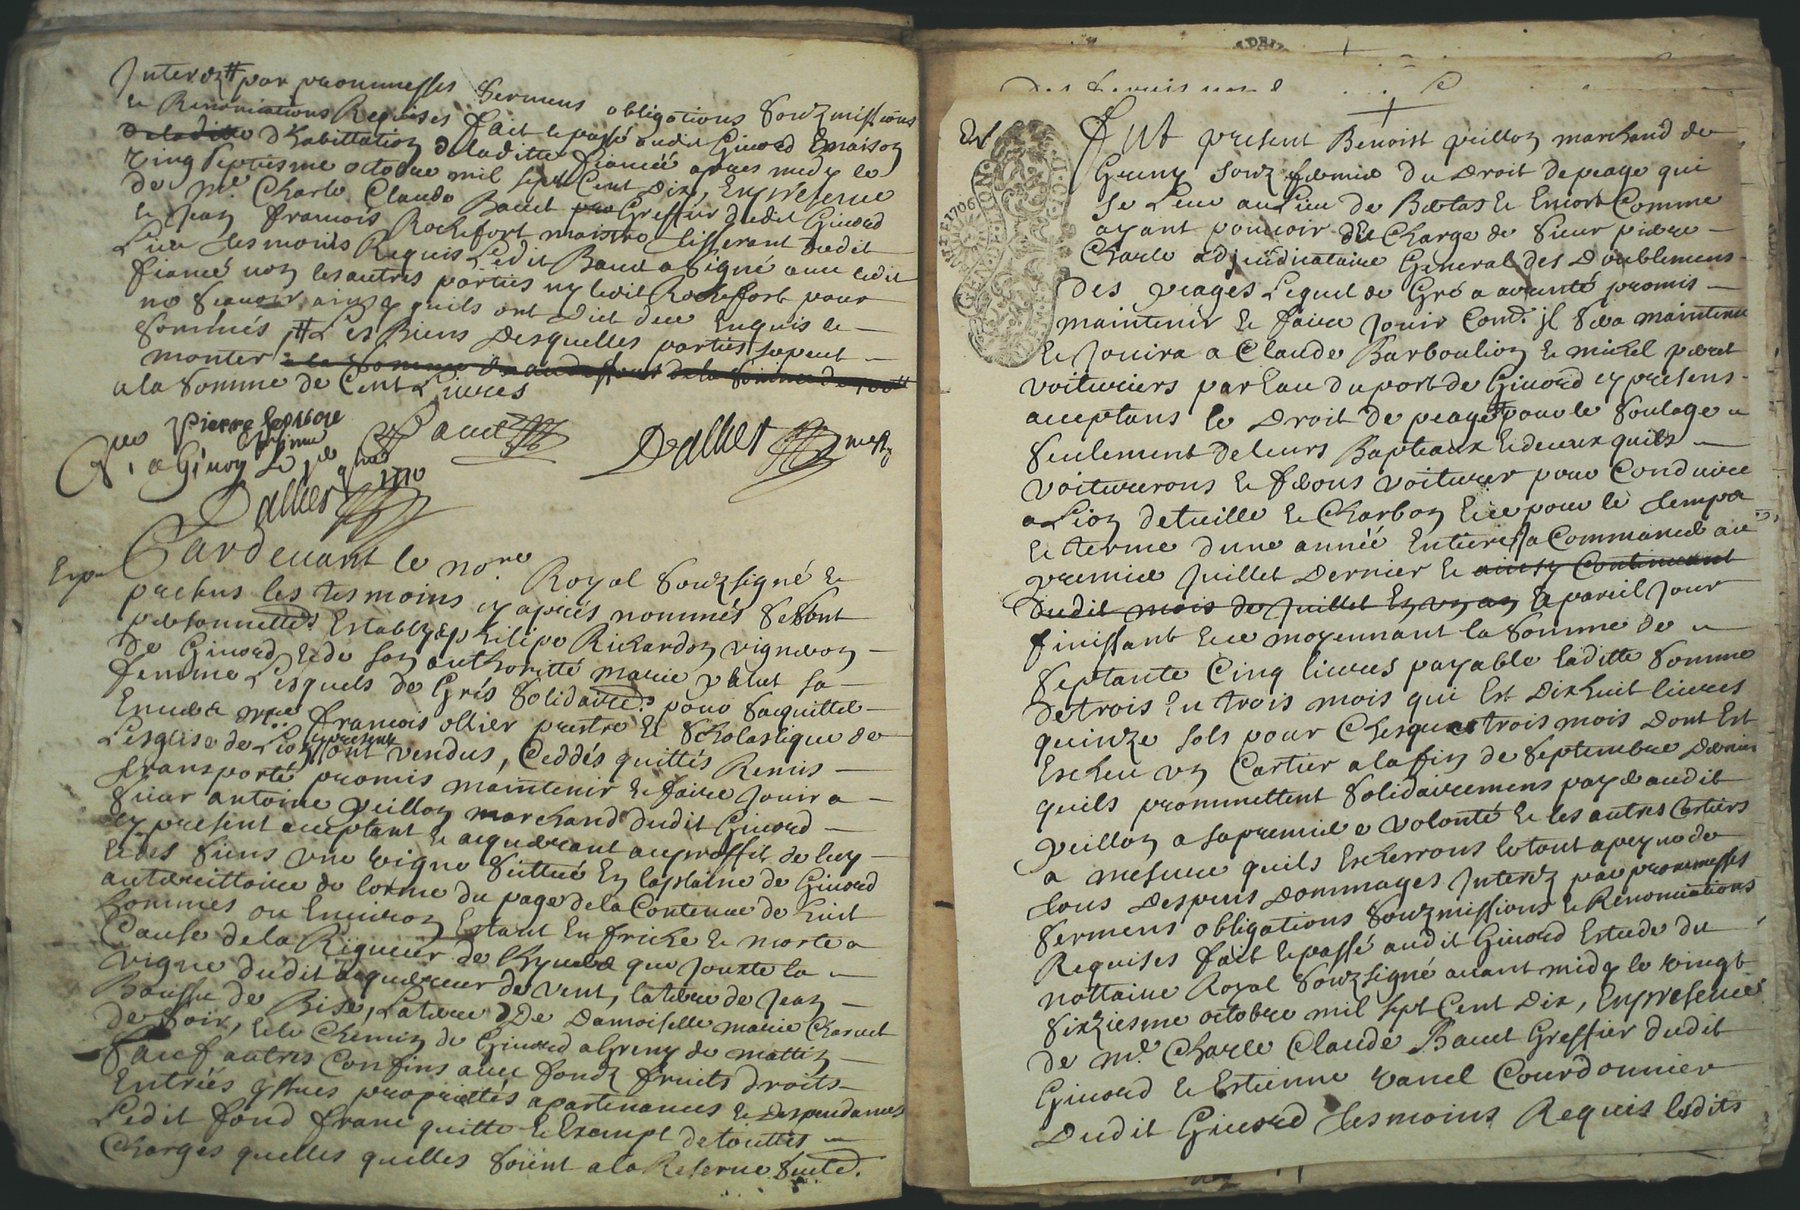 Interetz # par promesses sermens obligations souzmissions
et Renontiations Requises fait et passé audit Givord Maison
de laditte d'habittation de laditte fiancée apres midy le
vingt septiesme octobre mil sept Cent Dix, En presence
de Me Charle Claude Baud Greffier dudit Givord
et Jean francois Rochefort maistre tisserant dudit
Lieu tesmoins Requis Ledit Baud a signé avec ledit
fiancé non les autres parties ny ledit Rochefort pour
ne scavoir ainsy quils ont dict de ce Enquis et
sommés # Les Biens desquelles parties se peut
monter a la somme
a la somme de Cent Livres
Pierre
Baud
Dallier
no.re
a Givor Le
1710
Dallier
Exp.
Pardevant le no.re Royal souzsigné et
presens les tesmoins cy apres nommés se sont
personnellemt Establys philipe Richardon vigneron
de Givord et de son authoritté marie valut sa
femme Lesquels de Grés solidaire.t pour sacquitter
Envers Mre francois ollier prestre et scholastique de
Lesglise de Lion ont vendus, Ceddés quittés Remis
transporté promis maintenir et faire Jouir a
sieur antoine peillon marchand dudit Givord
cy present acceptant et acquerant au proffit de luy
et des siens une vigne scittué En la plaine de Givord
au territtoire de lorme du page de la Contenue de huit
hommes ou Environ Estant En friche et morte a
Cause de la Rigueur de lhyver que Jouxte la
vigne dudit acquereur de vent, la terre de Jean
Bousse de Bise, La terre De Damoiselle marie Charvet
de soir, et le Chemin de Givord a Greny de mattin
sauf autres Confins avec fondz fruits droits
Entrées yssues proprietés apartenances et despendances
Ledit fond franc quitte et Exempt de touttes
Charges quelles quelles soient a la Reserve seule.
GENERALITE 1706
Fut present Benoist peillon marchand de
Greny souz fermier du Droit de peage qui
se Leve au Lieu de Bretas et Encore Comme
ayant pouvoir et Charge de sieur pierre
Charle adjudicataire General des Doublemens
des peages Lequel de Gré a promis
maintenir et faire Jouir Comme il sera maintenu
et Jouira a Claude Barboulion et michel peret
voituriers par Eau du port de Givord cy presens
acceptans le Droit de peage # pour le soulage
seulement de leurs Bapteaux et de ceux quils
voitureront et feront voiturer pour Conduire
a Lion de tuille et Charbon Et ce pour le temps
et terme dune année Entiere a Commancé au
premier Juillet Dernier et ainsy Continuant
dudit mois de Juillet En un an a pareil Jour
finissant et ce moyennant la somme de
septante Cinq livres payable laditte somme
de trois En trois mois qui Est Dixhuit livres
quinze sols pour Chesque trois mois Dont Est
Escheu un Cartier a la fin de septembre dernier
quils promettent solidairement payer audit
peillon a sa premiere volonté et les autres Cartiers
a mesure quils Escherrons le tout a peyne de
tous Despens Dommages Interetz par promesses
sermens obligations souzmissions et Renontiations
Requises fait et passé audit Givord Estude du
nottaire Royal souzsigné avant midy le vingt
sixiesme octobre mil sept Cent Dix, En presence
de Me Charle Claude Baud Greffier dudit
Givord et Estienne vanel Courdonnier
dudit Givord tesmoins Requis lesdits